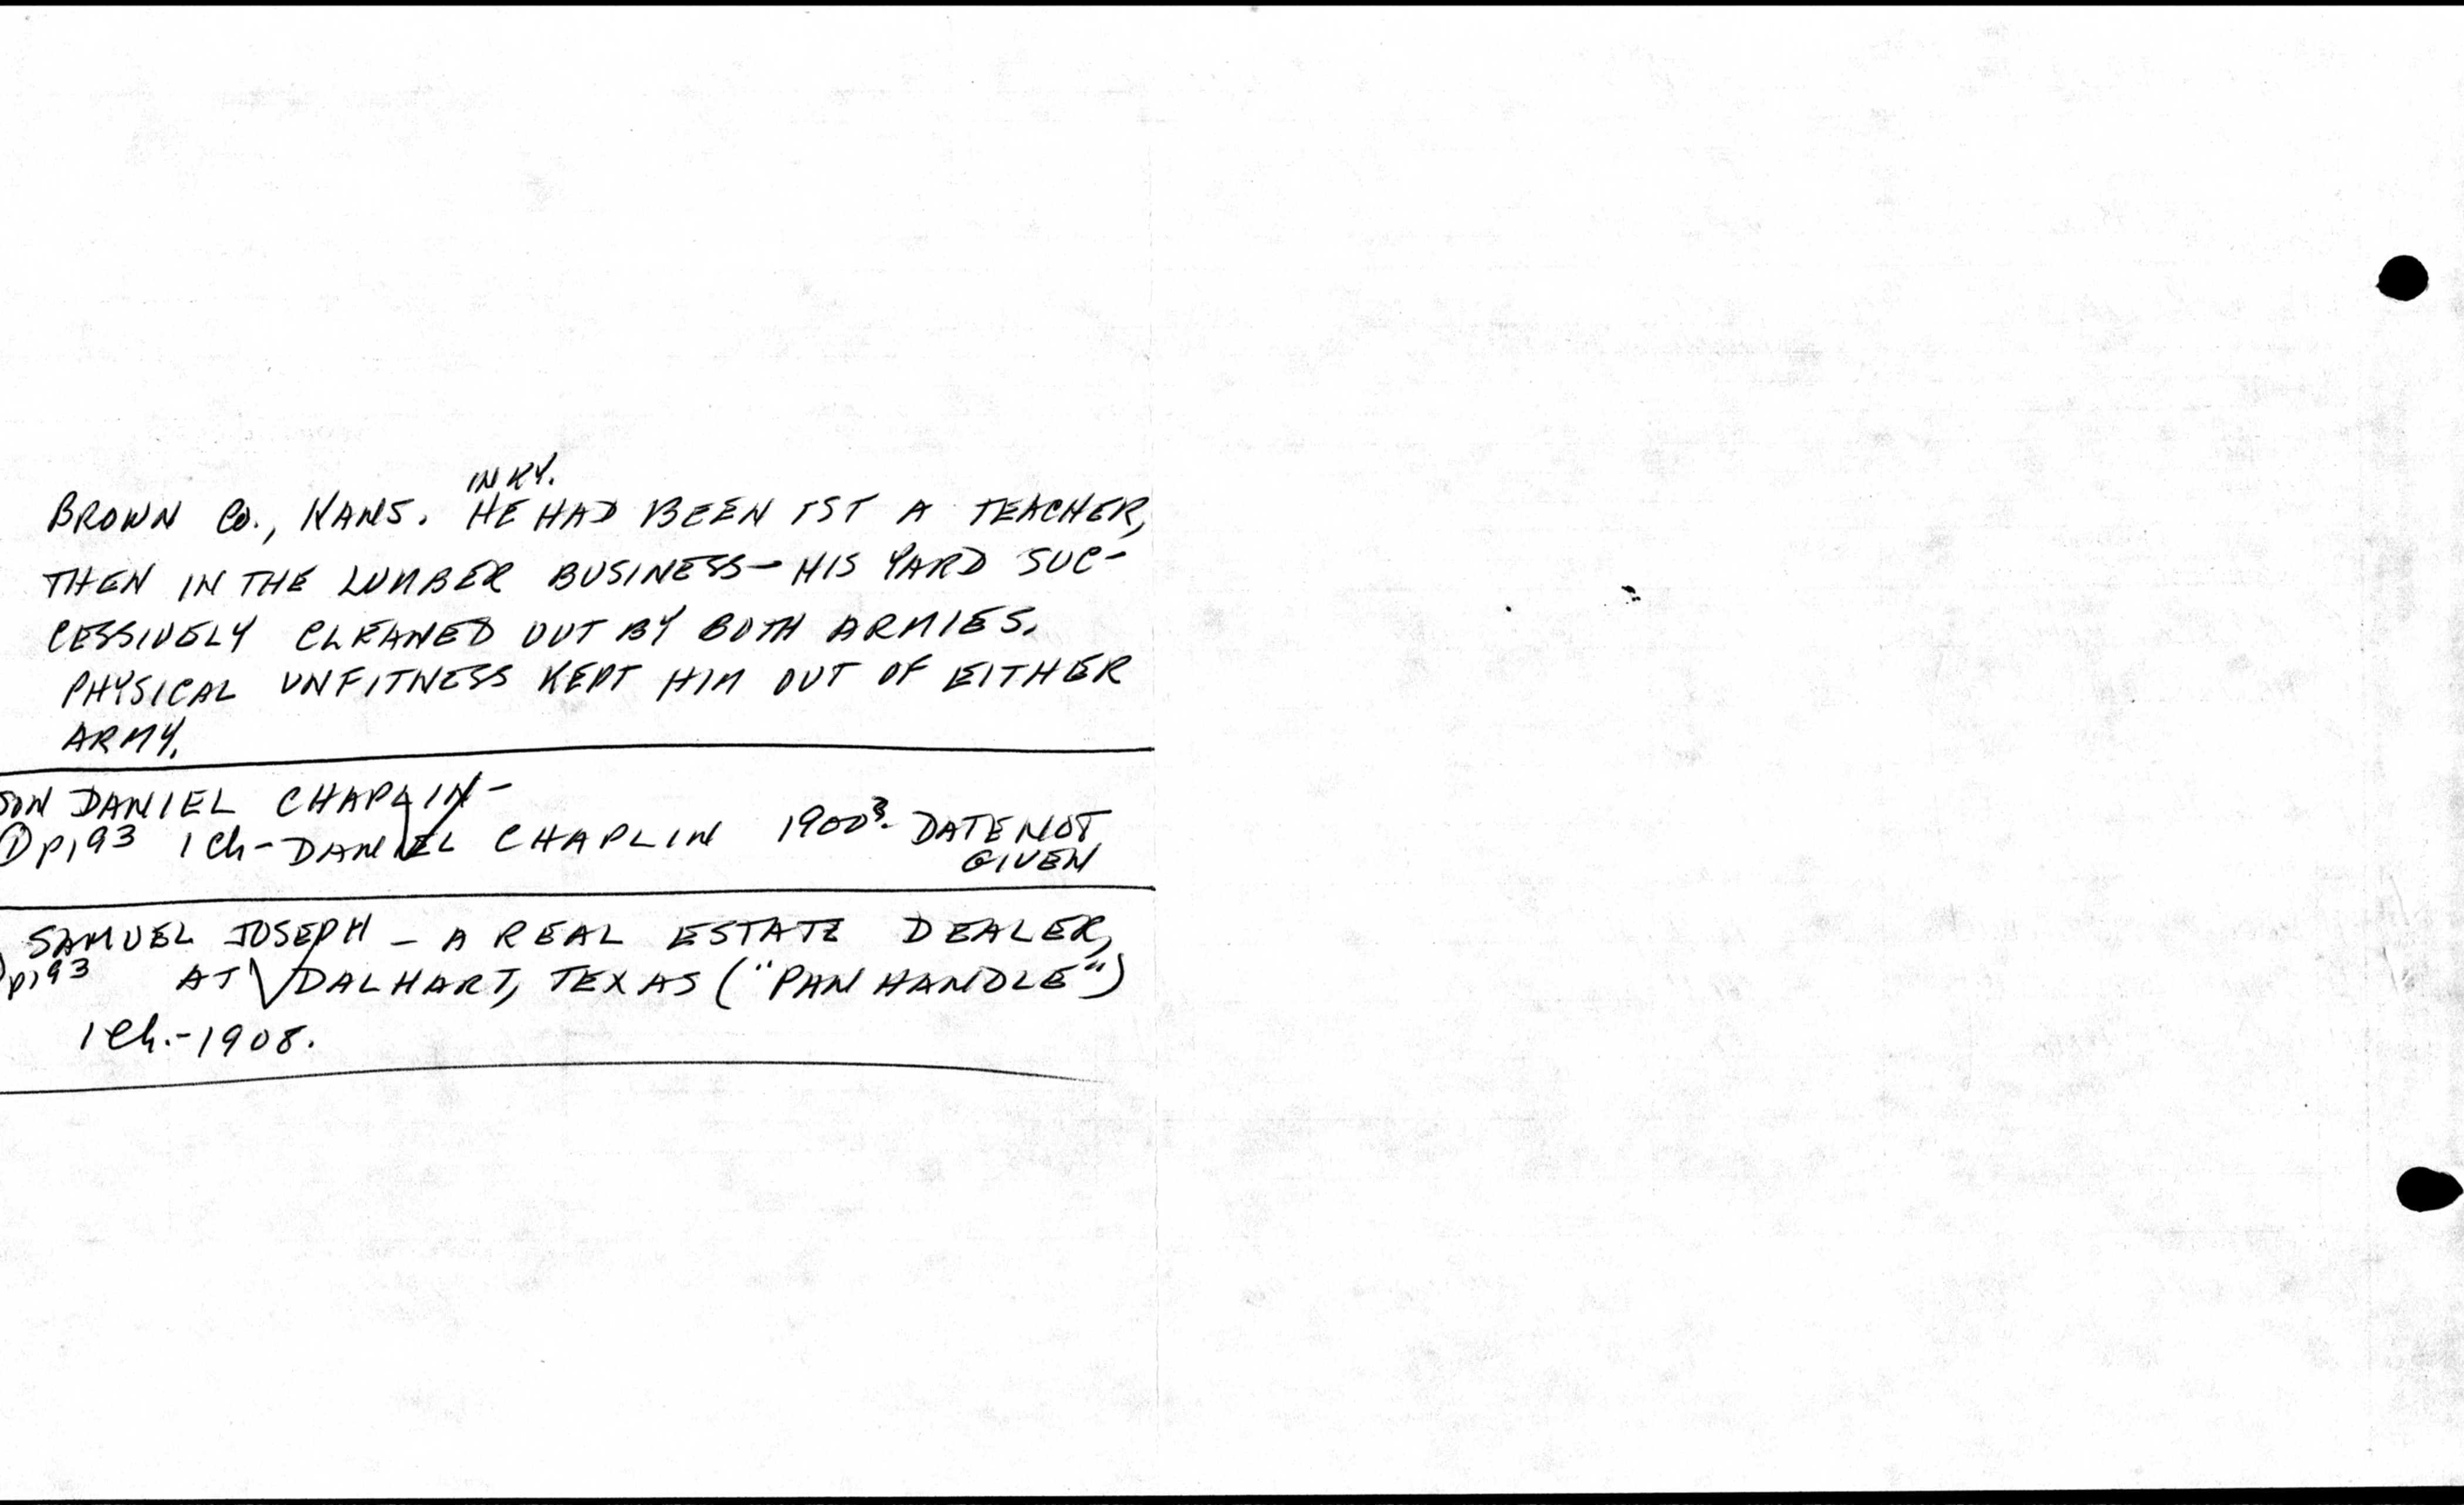 IN KY.
BROWN Co., KANS. HE HAD BEEN 1ST A TEACHER,
THEN IN THE LUMBER BUSINESS—HIS YARD SUC-
CESSIVELY CLEANED OUT BY BOTH ARMIES.
PHYSICAL UNFITNESS KEPT HIM OUT OF EITHER
ARMY.
SON DANIEL CHAPLIN-
① p.93 1 Ch-DANIEL CHAPLIN 1900?. DATE NOT
GIVEN
SAMUEL JOSEPH - A REAL ESTATE DEALER,
p.93 AT DALHART, TEXAS ("PAN HANDLE")
1 Ch.-1908.